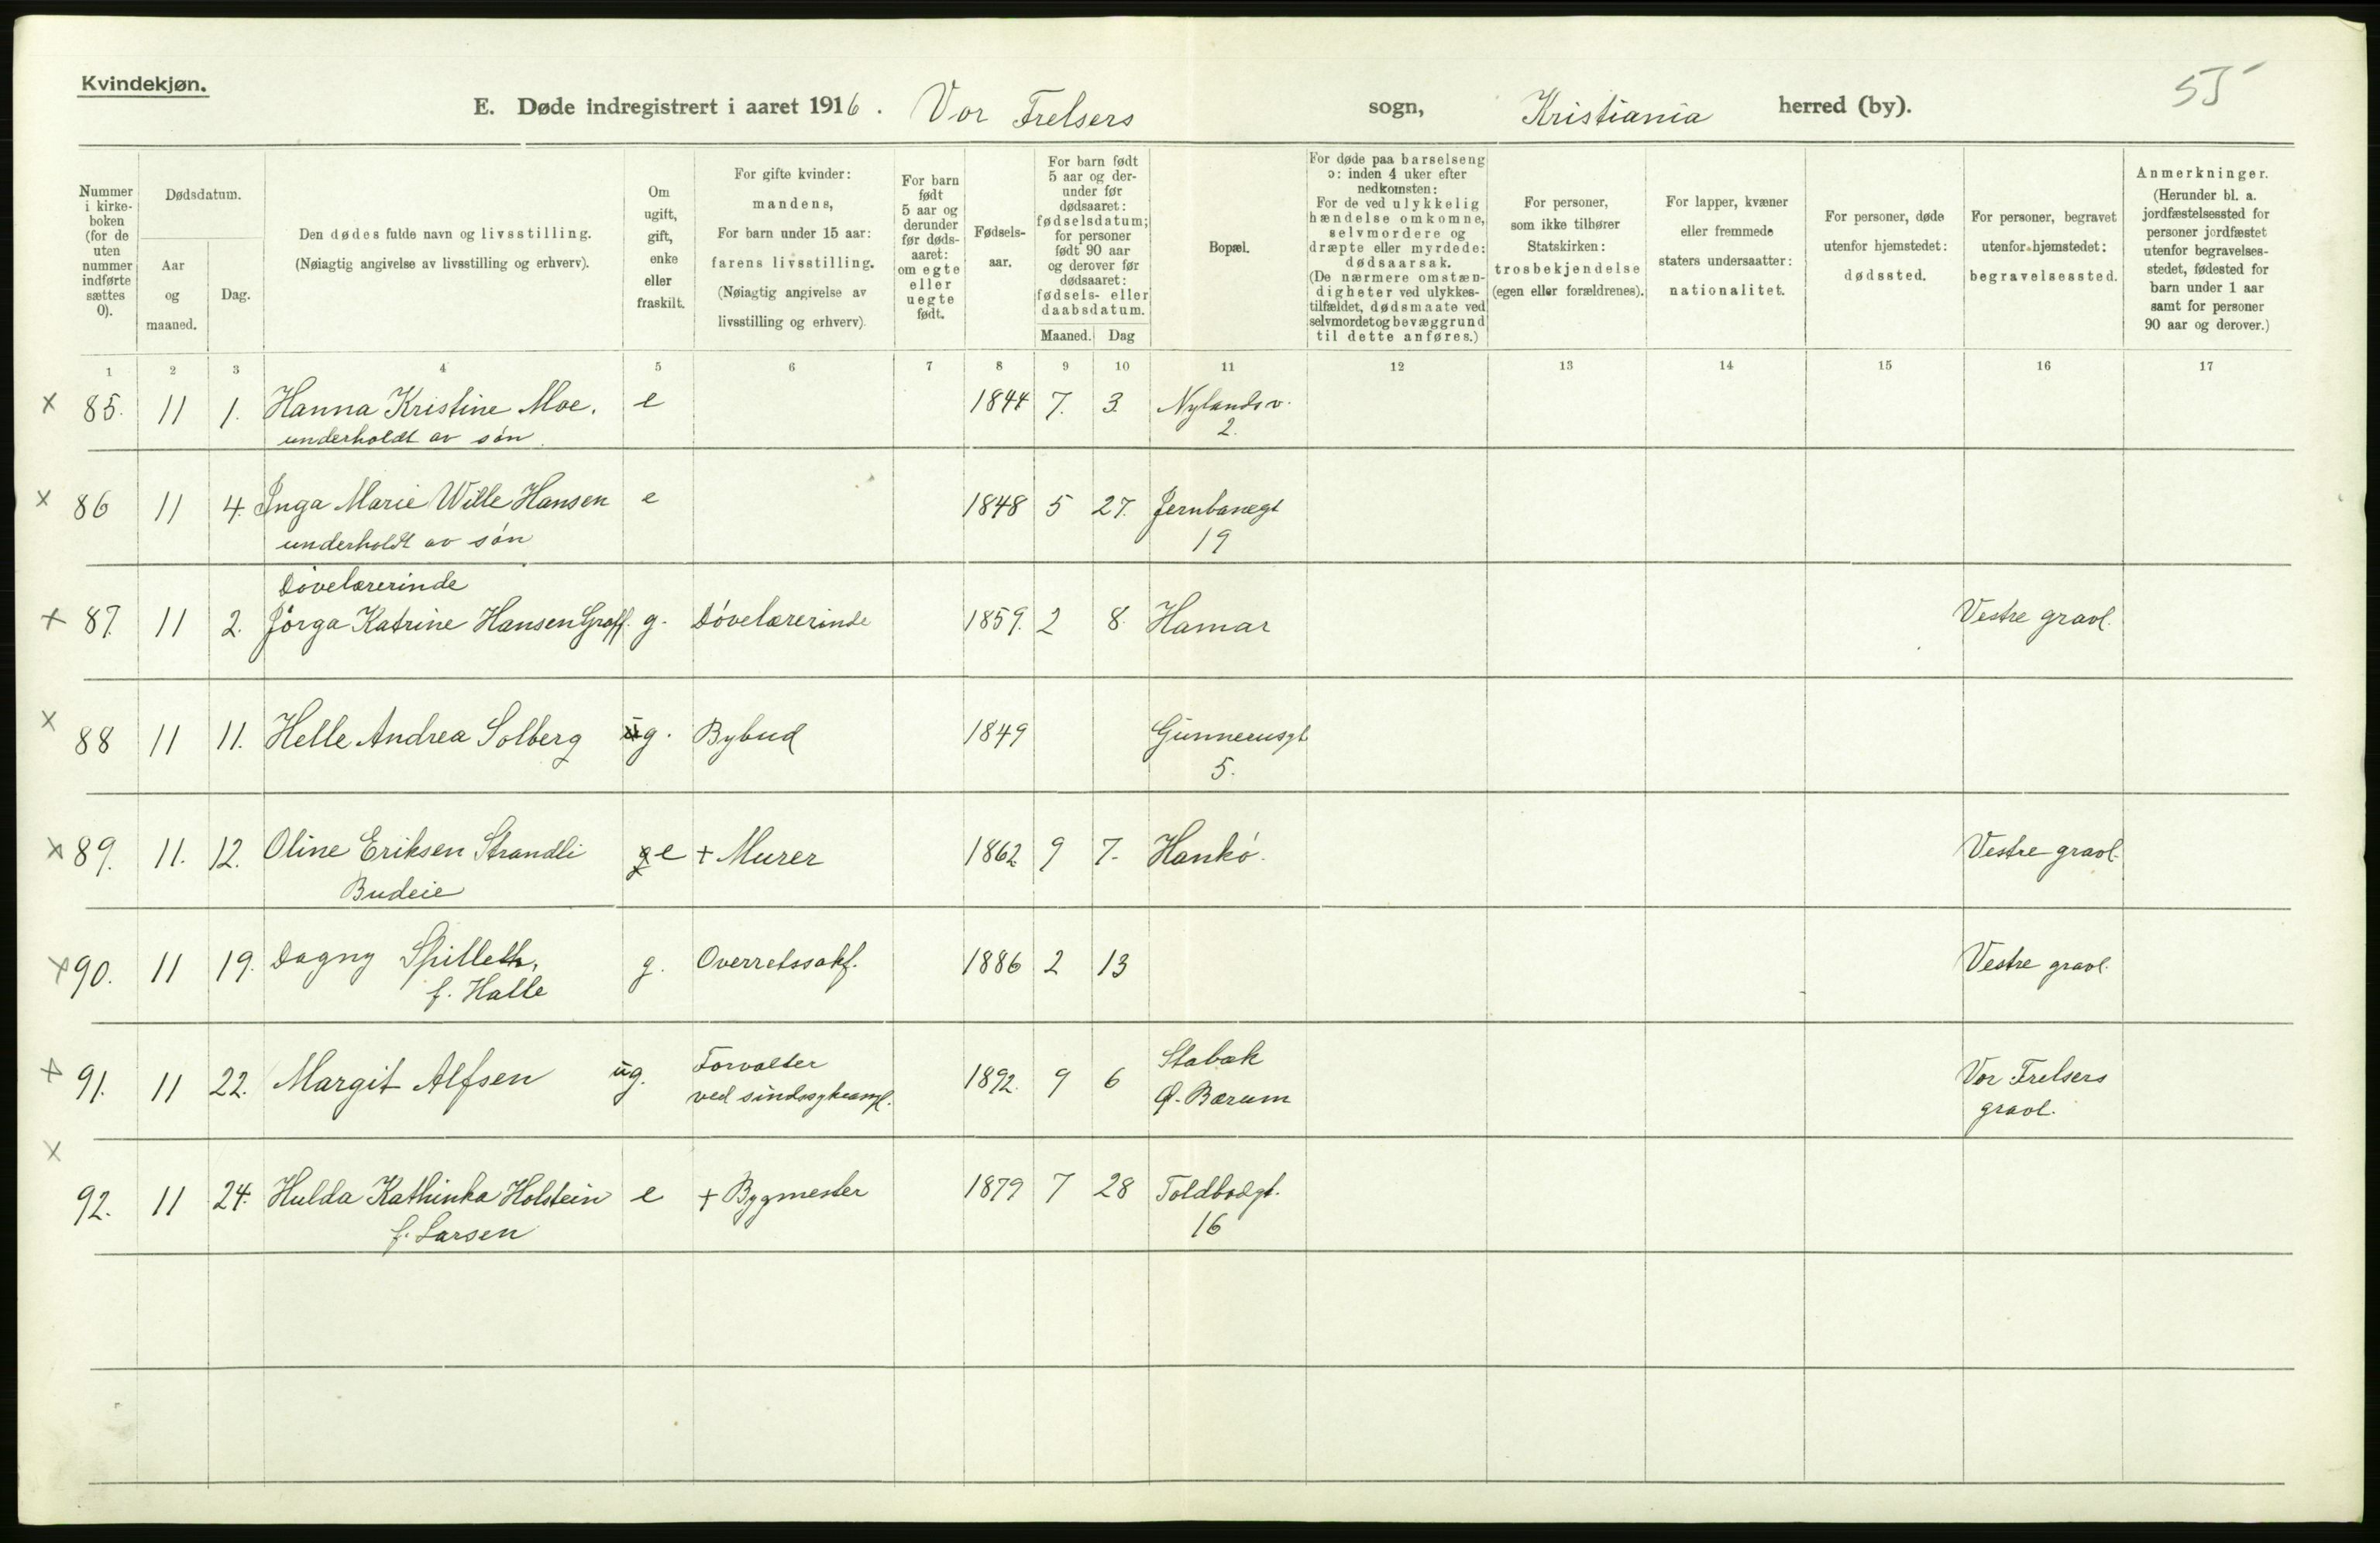 Kvindekjøn.
55
E. Døde indregistrert i aaret 1916. Vor Frelsers sogn, Kristiania herred (by).
Nummer i kirke- boken (for de uten nummer indførte sættes 0).
Dødsdatum.
Aar og maaned.
Dag.
Den dødes fulde navn og livsstilling.
(Nøiagtig angivelse av livsstilling og erhverv).
Om ugift, gift, enke eller fraskilt.
For gifte kvinder: mandens, For barn under 15 aar: farens livsstilling. (Nøiagtig angivelse av livsstilling og erhverv).
For barn født 5 aar og derunder før døds- aaret: om egte eller uegte født.
Fødsels- aar.
For barn født 5 aar og der- under før dødsaaret: fødselsdatum; for personer født 90 aar og derover før dødsaaret: fødsels- eller daabsdatum.
Maaned. Dag
Bopæl.
For døde paa barselseng ɔ: inden 4 uker efter nedkomsten: For de ved ulykkelig hændelse omkomne, selvmordere og dræpte eller myrdede: dødsaarsak. (De nærmere omstæn- digheter ved ulykkes- tilfældet, dødsmaate ved selvmordet og bevæggrund til dette anføres.)
For personer, som ikke tilhører Statskirken: trosbekjendelse (egen eller forældrenes).
For lapper, kvæner eller fremmede staters undersaatter: nationalitet.
For personer, døde utenfor hjemstedet: dødssted.
For personer, begravet utenfor hjemstedet: begravelsessted.
Anmerkninger. (Herunder bl. a. jordfæstelsessted for personer jordfæstet utenfor begravelses- stedet, fødested for barn under 1 aar samt for personer 90 aar og derover.)
1 2 3 4 5 6 7 8 9 10 11 12 13 14 15 16 17
x 85. 11 1. Hanna Kristine Moe. e 1844 7. 3. Nylandsv.
underholdt av søn. 2.
x 86 11 4. Inga Marie Wille Hansen e 1848 5 27. Jernbanegt
underholdt av søn 19
Døvelærerinde
x 87. 11 2. Jørga Katrine Hansen Graff. g. Døvelærerinde 1859. 2 8. Hamar Vestre gravl.
x 88 11 11. Helle Andrea Solberg ug. Bybud 1849 Gunnerusgt
5.
x 89. 11. 12. Oline Eriksen Strandli g e + Murer 1862 9 7. Hankø. Vestre gravl.
Budeie
x 90. 11 19. Dagny Spilleth, g. Overretssakf. 1886 2 13 Vestre gravl.
f. Halle
x 91. 11 22. Margit Alfsen ug. Forvalter 1892. 9 6 Stabæk Vor Frelsers
ved sindssykeasyl. Ø. Bærum gravl.
x 92. 11 24. Hulda Kathinka Holstein e + Bygmester 1879 7 28 Toldbodgt.
f. Larsen 16